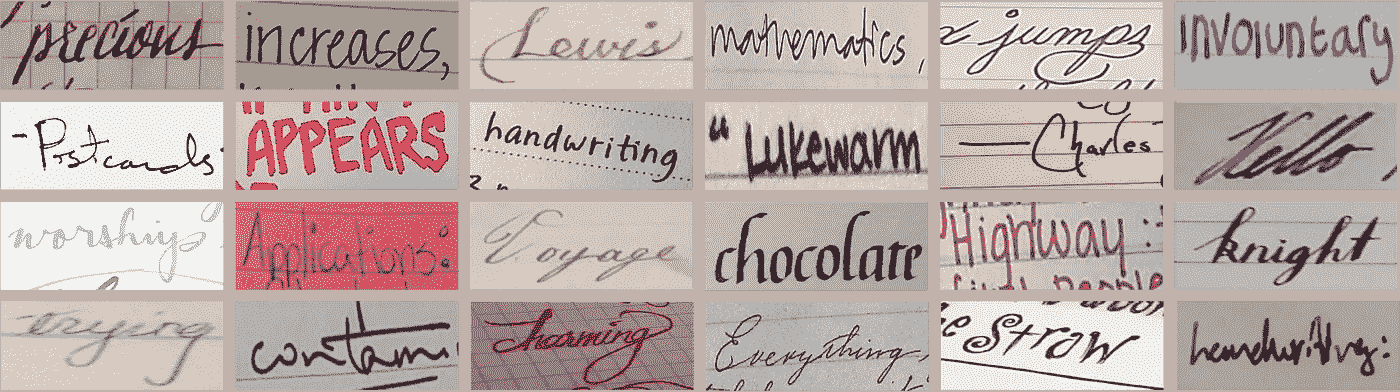 precious increases, Lewis mathematics, jumps Involuntary
-Postcards APPEARS handwriting "Lukewarm — Charles Hello,
worships Applications: Voyage chocolate "Highway: knight
trying contami Charming Everything, Straw handwriting: